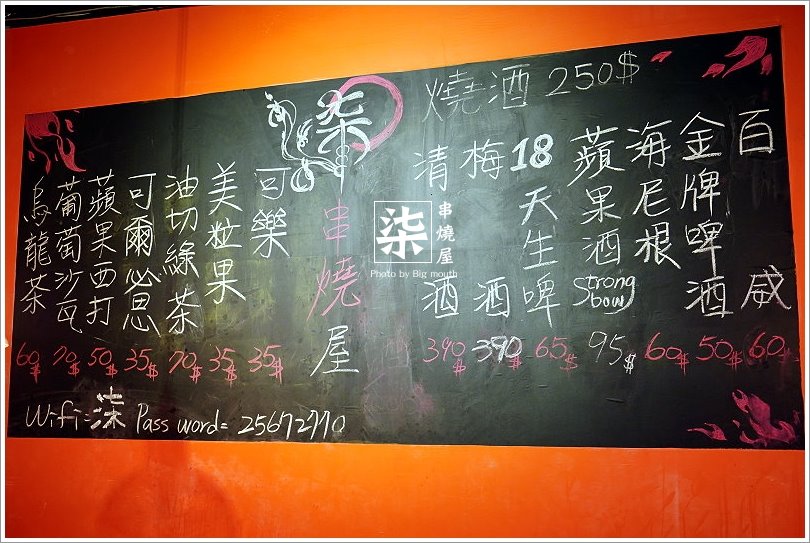 燒酒 250$
百威 60$
金牌啤酒 50$
海尼根 60$
蘋果酒 Strong bow 95$
18天生啤 65$
梅酒 390$
清酒 390$
柒串燒屋
可樂 35$
美粒果 35$
油切綠茶 70$
可爾必思 35$
蘋果西打 50$
葡萄沙瓦 70$
烏龍茶 60$
Wifi=柒 Password=25672770
柒 串燒屋
Photo by Big mouth